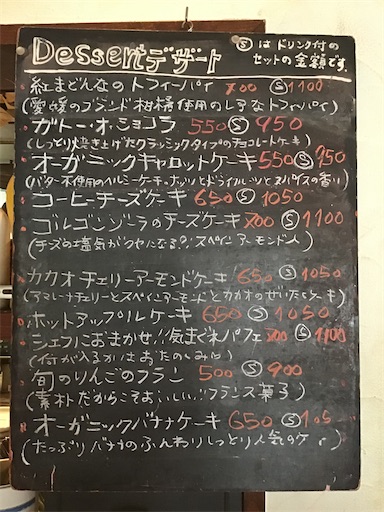 Dessert デザート
Ⓢ は ドリンク付の
セットの金額です。
紅まどんなのトフィーパイ 700 Ⓢ1100
(愛媛のブランド柑橘使用のレアなトフィーパイ)
ガトー・オ・ショコラ 550 Ⓢ 950
(しっとり焼き上げたクラシックタイプのチョコレートケーキ)
オーガニックキャロットケーキ 550 Ⓢ 950
(バター不使用のヘルシーケーキ。ナッツとドライフルーツとスパイスの香り)
コーヒーチーズケーキ 650 Ⓢ 1050
ゴルゴンゾーラのチーズケーキ 700 Ⓢ 1100
(チーズの塩気がクセになる?! スペインアーモンド入)
カカオチェリーアーモンドケーキ 650 Ⓢ 1050
(アマレーナチェリーとスペインアーモンドとカカオのぜいたくケーキ)
ホットアップルケーキ 650 Ⓢ 1050
シェフにおまかせ!! 気まぐれパフェ 700 Ⓢ 1100
(何が入るかはおたのしみ)
旬のりんごのフラン 500 Ⓢ 900
(素朴だからこそおいしい!! フランス菓子)
オーガニックバナナケーキ 650 Ⓢ 105
(たっぷりバナナのふんわりしっとり人気のケ